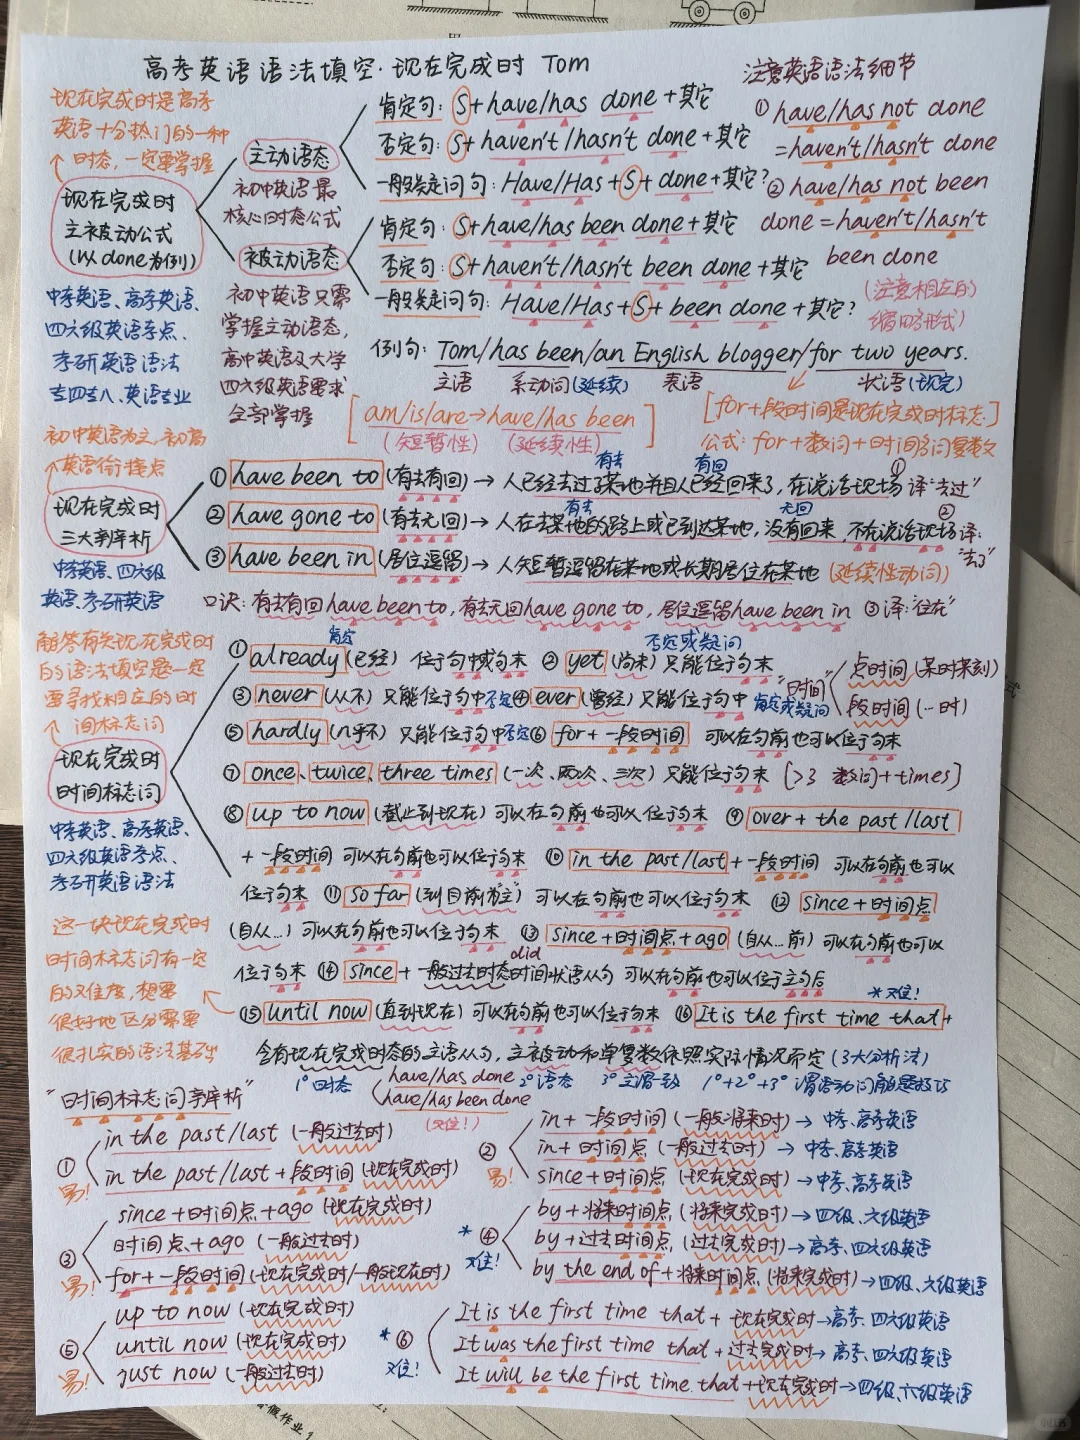 高考英语语法填空·现在完成时 Tom
注意英语语法细节
现在完成时是高考
英语十分热门的一种
时态，一定要掌握
现在完成时
主被动公式
(以done为例)
中考英语、高考英语、
四六级英语考点、
考研英语语法
专四专八、英语专业
主动语态
初中英语最
核心时态公式
肯定句: S+have/has done+其它
否定句: S+haven't/hasn't done+其它
一般疑问句: Have/Has+S+done+其它?
被动语态
初中英语只需
掌握主动语态,
高中英语及大学
四六级英语要求
全部掌握
肯定句: S+have/has been done+其它
否定句: S+haven't/hasn't been done+其它
一般疑问句: Have/Has+S+been done+其它?
① have/has not done
=haven't/hasn't done
② have/has not been
done=haven't/hasn't
been done
(注意相应的
缩略形式)
例句: Tom/has been/an English blogger/for two years.
主语 系动词(延续) 表语 状语(现完)
[am/is/are→have/has been]
(短暂性) (延续性)
[for+段时间是现在完成时标志]
公式: for+数词+时间名词复数
初中英语为主,初高
英语衔接点
现在完成时
三大辨析
中考英语、四六级
英语、考研英语
有去 有回
① have been to (有去有回)→人已经去过了某地并且人已经回来了,在说话现场 ①译:"去过"
有去 无回
② have gone to (有去无回)→人在去某地的路上或已到达某地,没有回来 不在说话现场 ②译:"去了"
③ have been in (居住逗留)→人短暂逗留在某地或长期居住在某地 (延续性动词)
口诀: 有去有回have been to, 有去无回have gone to, 居住逗留have been in ③译:"住在"
解答有关现在完成时
的语法填空题一定
要寻找相应的时
间标志词
现在完成时
时间标志词
中考英语、高考英语、
四六级英语考点、
考研英语语法
这一块现在完成时
时间标志词有一定
的难度,想要
很好地区分需要
很扎实的语法基础
肯定 否定或疑问
① already (已经) 位于句中或句末 ② yet (尚未) 只能位于句末
"时间" 点时间 (某时某刻)
段时间 (…时)
③ never (从不) 只能位于句中 否定 ④ ever (曾经) 只能位于句中 肯定或疑问
⑤ hardly (几乎不) 只能位于句中 否定 ⑥ for+一段时间 可以在句前也可以位于句末
⑦ once、twice、three times (一次、两次、三次) 只能位于句末 [>3 数词+times]
⑧ up to now (截止到现在) 可以在句前也可以位于句末 ⑨ over+the past/last
+一段时间 可以在句前也可以位于句末 ⑩ in the past/last+一段时间 可以在句前也可以
位于句末 ⑪ so far (到目前为止) 可以在句前也可以位于句末 ⑫ since+时间点
(自从…) 可以在句前也可以位于句末 ⑬ since+时间点+ago (自从…前) 可以在句前也可以
did
位于句末 ⑭ since+一般过去时态时间状语从句 可以在句前也可以位于主句后
*难!
⑮ until now (直到现在) 可以在句前也可以位于句末 ⑯ It is the first time that+
含有现在完成时态的主语从句,主被动和单复数依照实际情况而定 (3大分析法)
1°时态 have/has done
have/has been done 2°语态 3°主谓一致 1°+2°+3°谓语动词解题技巧
"时间标志词辨析"
① in the past/last (一般过去时)
易! in the past/last+段时间 (现在完成时)
(难!)
② in+一段时间 (一般将来时)→中考、高考英语
in+时间点 (一般过去时)→中考、高考英语
since+时间点 (现在完成时)→中考、高考英语
③ since+时间点+ago (现在完成时)
时间点+ago (一般过去时)
易! for+一段时间 (现在完成时/一般现在时)
*④ by+将来时间点 (将来完成时)→四级、六级英语
by+过去时间点 (过去完成时)→高考、四六级英语
难! by the end of+将来时间点 (将来完成时)→四级、六级英语
⑤ up to now (现在完成时)
until now (现在完成时)
易! just now (一般过去时)
*⑥ It is the first time that+现在完成时→高考、四六级英语
It was the first time that+过去完成时→高考、四六级英语
难! It will be the first time that+现在完成时→四级、六级英语
假作业